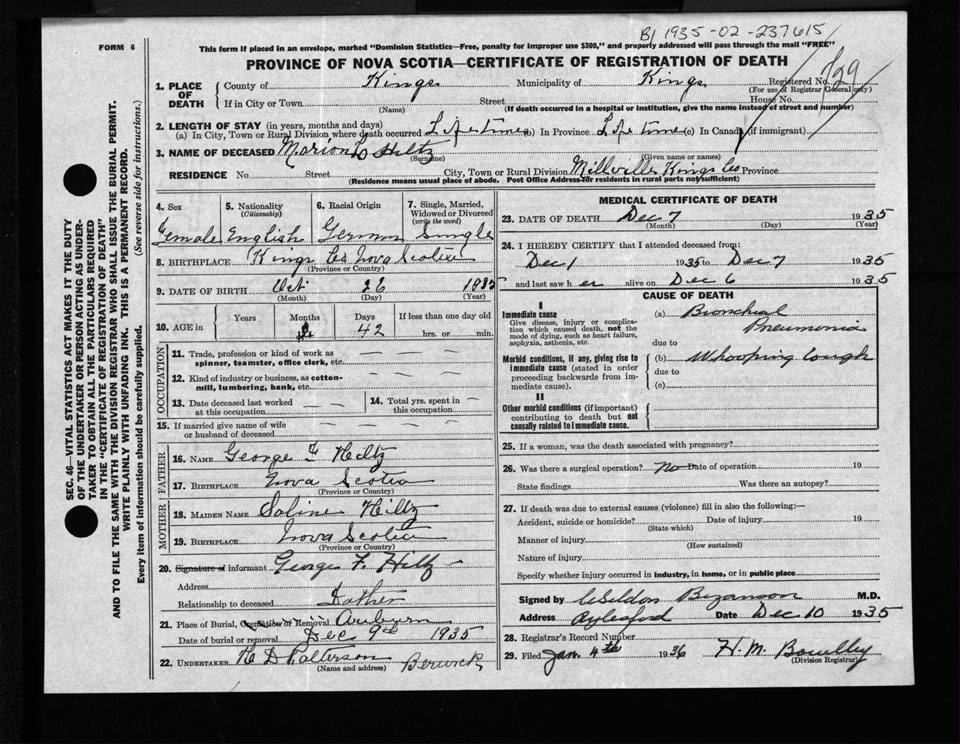 B1 1935-02-237615
FORM 6
This form if placed in an envelope, marked "Dominion Statistics—Free, penalty for improper use $300," and properly addressed will pass through the mail "FREE"
PROVINCE OF NOVA SCOTIA—CERTIFICATE OF REGISTRATION OF DEATH
1. PLACE OF DEATH County of Kings Municipality of Kings Registered No. 129
(For use of Registrar General only)
If in City or Town Street House No.
(Name) (If death occurred in a hospital or institution, give the name instead of street and number)
2. LENGTH OF STAY (in years, months and days)
(a) In City, Town or Rural Division where death occurred Life time (b) In Province Life time (c) In Canada (if immigrant)
3. NAME OF DECEASED Marion Hiltz
(Surname) (Given name or names)
RESIDENCE No. Street City, Town or Rural Division Millville Kings Co Province
(Residence means usual place of abode. Post Office Address for residents in rural parts not sufficient)
SEC. 46—VITAL STATISTICS ACT MAKES IT THE DUTY
OF THE UNDERTAKER OR PERSON ACTING AS UNDER-
TAKER TO OBTAIN ALL THE PARTICULARS REQUIRED
IN THE "CERTIFICATE OF REGISTRATION OF DEATH"
AND TO FILE THE SAME WITH THE DIVISION REGISTRAR WHO SHALL ISSUE THE BURIAL PERMIT.
WRITE PLAINLY WITH UNFADING INK. THIS IS A PERMANENT RECORD.
Every item of information should be carefully supplied. (See reverse side for instructions.)
4. Sex 5. Nationality (Citizenship) 6. Racial Origin 7. Single, Married, Widowed or Divorced (write the word)
Female English German Single
8. BIRTHPLACE Kings Co Nova Scotia
(Province or Country)
9. DATE OF BIRTH Oct 26 1935
(Month) (Day) (Year)
10. AGE in Years Months Days If less than one day old
42 hrs. or min.
OCCUPATION
11. Trade, profession or kind of work as spinner, teamster, office clerk, etc. — — —
12. Kind of industry or business, as cotton-mill, lumbering, bank, etc. — — —
13. Date deceased last worked at this occupation — — 14. Total yrs. spent in this occupation — —
15. If married give name of wife or husband of deceased
FATHER
16. NAME George F Hiltz
17. BIRTHPLACE Nova Scotia
(Province or Country)
MOTHER
18. MAIDEN NAME Hiltz
19. BIRTHPLACE Nova Scotia
(Province or Country)
20. Signature of informant George F. Hiltz
Address
Relationship to deceased Father
21. Place of Burial, Cremation or Removal Auburn
Date of burial or removal Dec 9th 1935
22. UNDERTAKER H D Patterson Berwick
(Name and address)
MEDICAL CERTIFICATE OF DEATH
23. DATE OF DEATH Dec 7 1935
(Month) (Day) (Year)
24. I HEREBY CERTIFY that I attended deceased from:
Dec 1 1935 to Dec 7 1935
and last saw her alive on Dec 6 1935
CAUSE OF DEATH
I
Immediate cause (a) Bronchial
Give disease, injury or complication which caused death, not the mode of dying, such as heart failure, asphyxia, asthenia, etc. Pneumonia
due to
Morbid conditions, if any, giving rise to immediate cause (stated in order proceeding backwards from immediate cause). (b) Whooping Cough
due to
(c)
II
Other morbid conditions (if important) contributing to death but not causally related to immediate cause.
25. If a woman, was the death associated with pregnancy?
26. Was there a surgical operation? no Date of operation 19
State findings Was there an autopsy?
27. If death was due to external causes (violence) fill in also the following:—
Accident, suicide or homicide? Date of injury 19
(State which)
Manner of injury
(How sustained)
Nature of injury
Specify whether injury occurred in industry, in home, or in public place
Signed by Weldon Bezanson M.D.
Address Aylesford Date Dec 10 1935
28. Registrar's Record Number
29. Filed Jan. 4th 1936 H. M.
(Division Registrar)